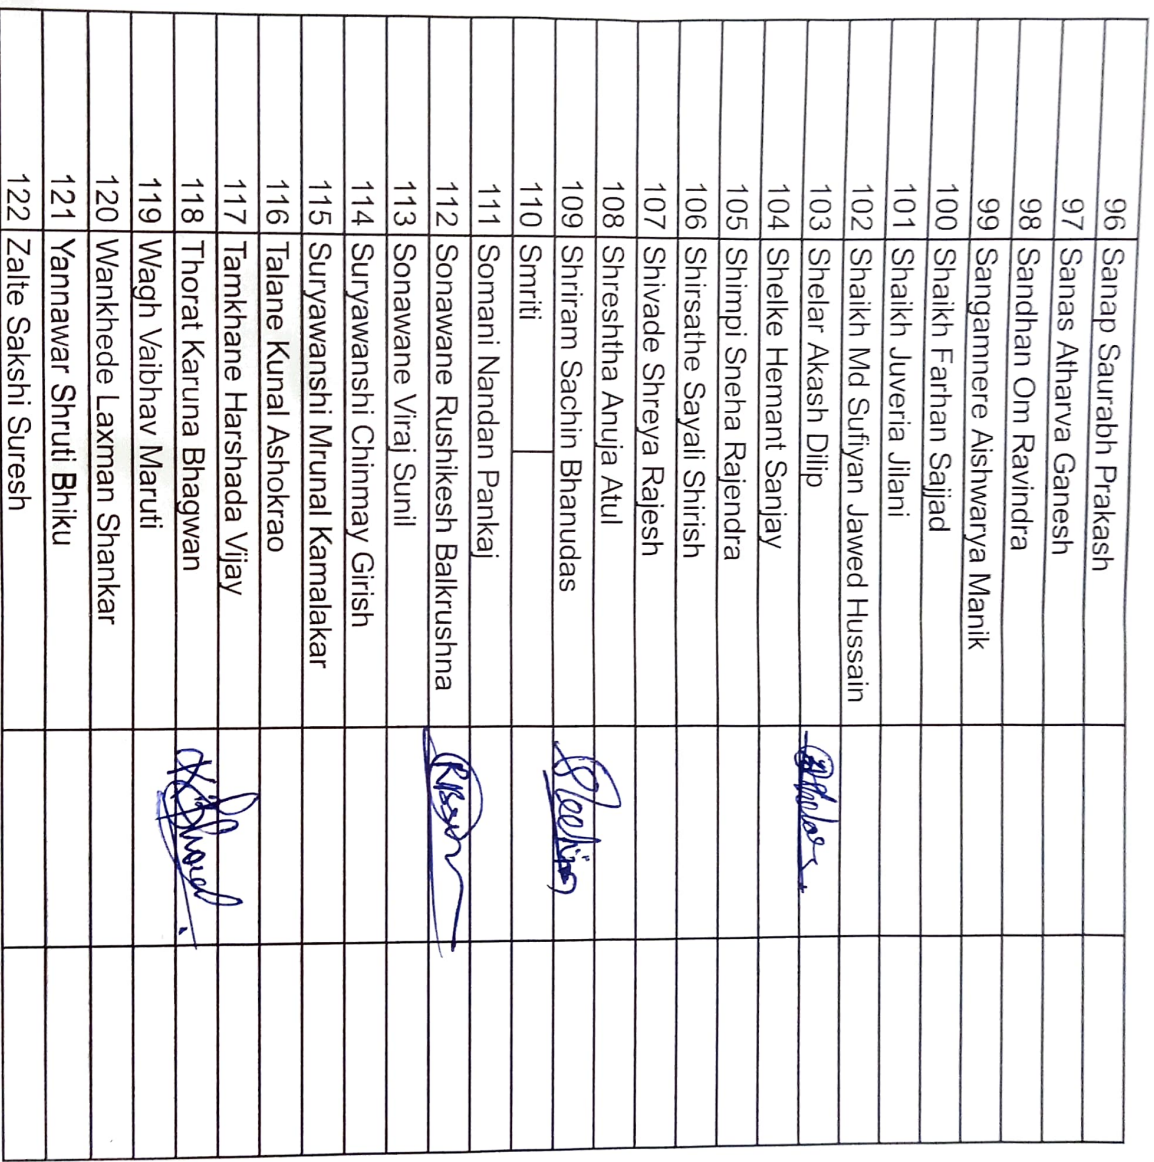 96 Sanap Saurabh Prakash
97 Sanas Atharva Ganesh
98 Sandhan Om Ravindra
99 Sangamnere Aishwarya Manik
100 Shaikh Farhan Sajjad
101 Shaikh Juveria Jilani
102 Shaikh Md Sufiyan Jawed Hussain
103 Shelar Akash Dilip
104 Shelke Hemant Sanjay
105 Shimpi Sneha Rajendra
106 Shirsathe Sayali Shirish
107 Shivade Shreya Rajesh
108 Shreshtha Anuja Atul
109 Shriram Sachin Bhanudas
110 Smriti
111 Somani Nandan Pankaj
112 Sonawane Rushikesh Balkrushna
113 Sonawane Viraj Sunil
114 Suryawanshi Chinmay Girish
115 Suryawanshi Mrunal Kamalakar
116 Talane Kunal Ashokrao
117 Tamkhane Harshada Vijay
118 Thorat Karuna Bhagwan
119 Wagh Vaibhav Maruti
120 Wankhede Laxman Shankar
121 Yannawar Shruti Bhiku
122 Zalte Sakshi Suresh